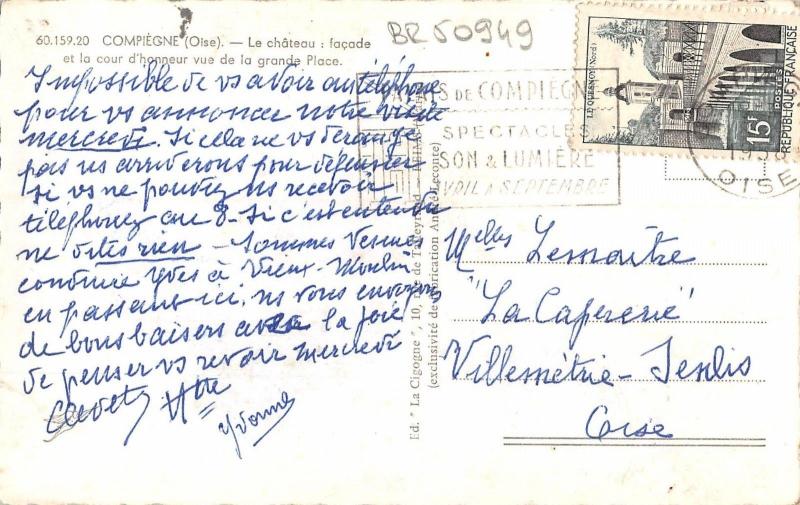 60.159.20 COMPIÈGNE (Oise). — Le château : façade
et la cour d'honneur vue de la grande Place.
BR50949
Impossible de vs avoir au téléphone
pour vs annoncer notre visite
mercredi. Si cela ne vs dérange
pas ns arriverons pour déjeuner
si vs ne pouvez ns recevoir
téléphonez au 8 - Si c'est entendu
ne dites rien - Sommes venues
conduire Yves à Vieux-Moulin
en passant ici, ns vous envoyons
de bons baisers avec la joie
de penser vs revoir mercredi
Yvonne
Ed. "La Cigogne", 10, rue de Talleyrand
(exclusivité de fabrication André Lecoute)
PALAIS DE COMPIÈGNE
SPECTACLES
SON & LUMIÈRE
AVRIL A SEPTEMBRE
OISE
LE QUESNOY (Nord)
15F
POSTES
REPUBLIQUE FRANÇAISE
Melles Lemaitre
"La Capererie"
Villemétrie - Senlis
Oise